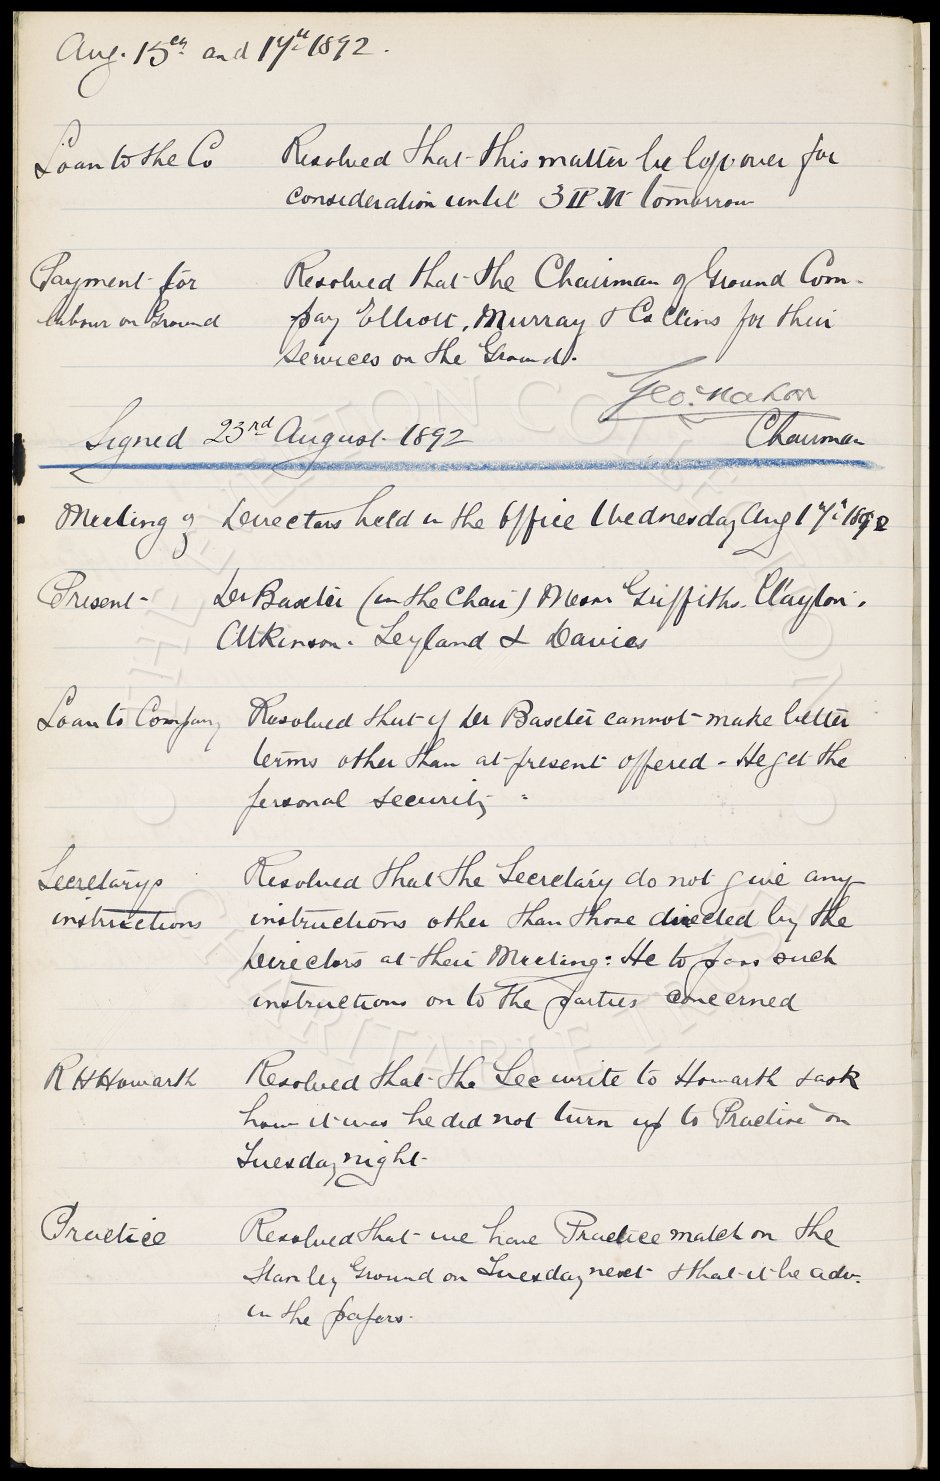 Aug. 15th and 17th 1892.
Loan to the Co Resolved that this matter be left over for
consideration until 3 P.M. tomorrow
Payment for Resolved that the Chairman of Ground Com.
labour on Ground pay Elliott, Murray & Collins for their
services on the Ground.
Geo. Mahon
Signed 23rd August 1892 Chairman
Meeting of Directors held in the Office Wednesday Aug 17th 1892
Present - Dr Baxter (in the Chair) Messrs Griffiths. Clayton.
Atkinson. Leyland & Davies
Loan to Company Resolved that if Dr Baxter cannot make better
terms other than at present offered - He get the
personal security
Secretarys Resolved that the Secretary do not give any
instructions instructions other than those directed by the
Directors at their Meeting: He to pass such
instructions on to the parties concerned
R H Howarth Resolved that the Sec write to Howarth & ask
how it was he did not turn up to Practice on
Tuesday night
Practice Resolved that we have Practice match on the
Stanley Ground on Tuesday next & that it be adv.
in the papers.
THE EVERTON COLLECTION
CHARITABLE TRUST